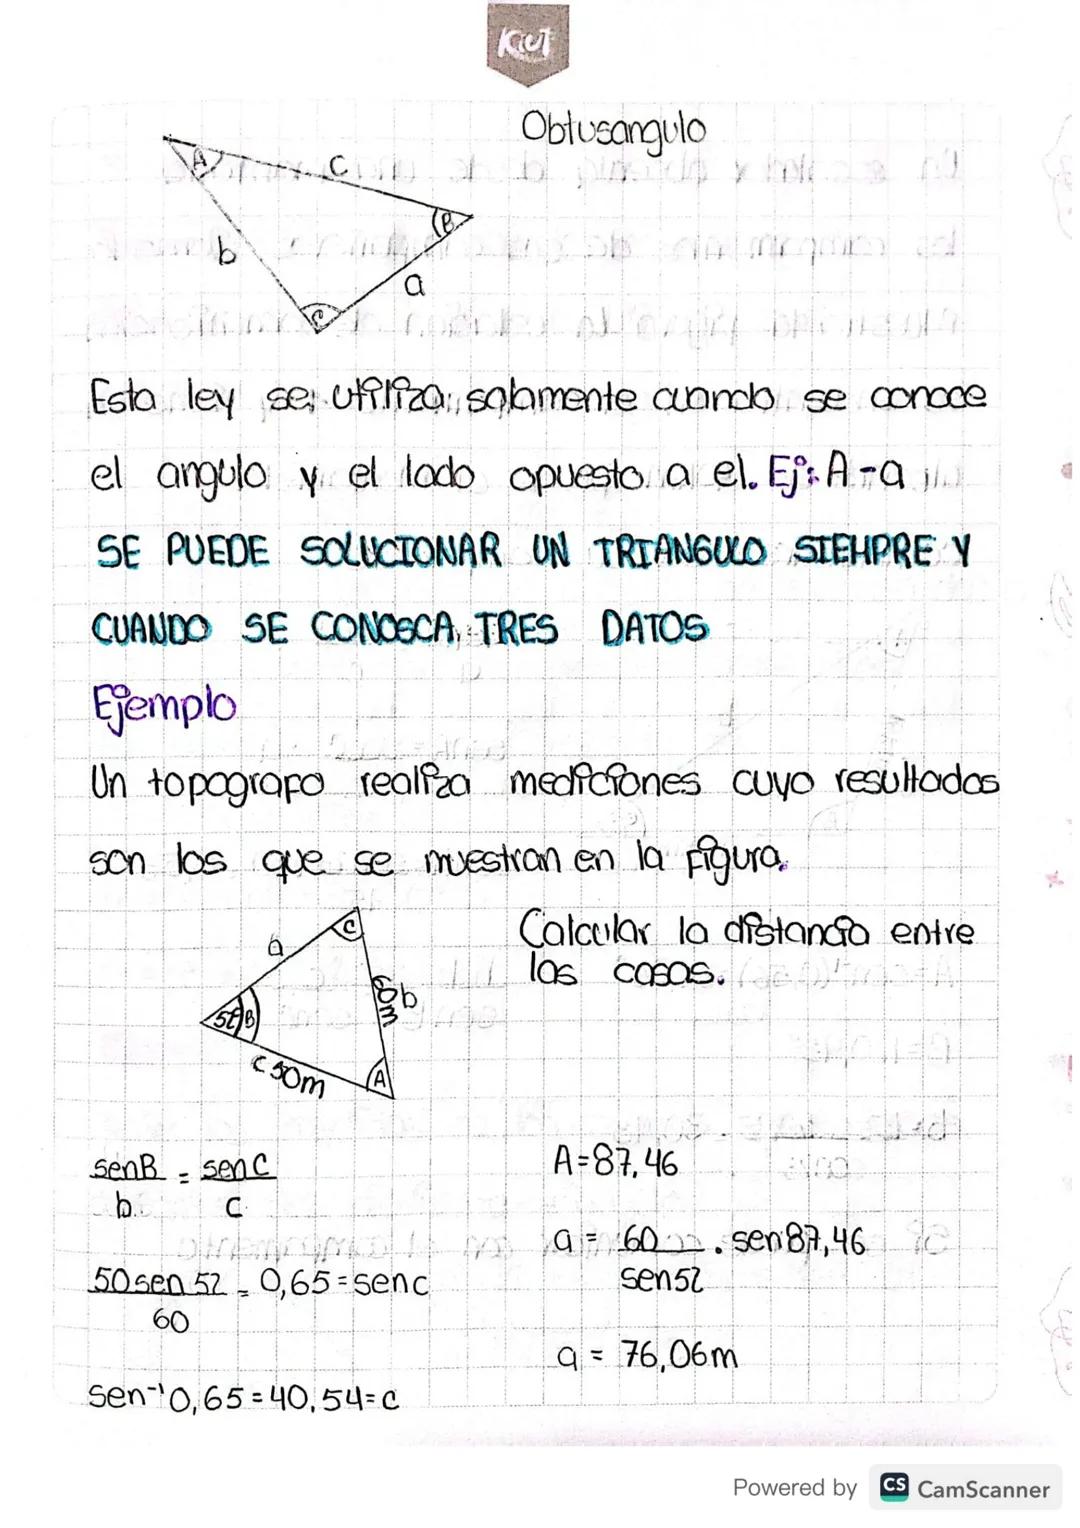 Kiut
Obtusangulo
A
c
B
b
a
C
Esta ley se utiliza solamente cuando se conoce
el angulo y el lado opuesto a el. Ej: A-a
SE PUEDE SOLUCIONAR UN TRIANGULO SIEMPRE Y
CUANDO SE CONOSCA TRES DATOS
Ejemplo
Un topografo realiza mediciones cuyo resultados
son los que se muestran en la figura.
Calcular la distancia entre
las casas.
C
a
60m b
52 B
c 50m
A
senB = senC
b c
50sen 52 = 0,65=senc
60
sen-¹0,65=40,54=c
A=87,46
a = 60 . sen87,46
sen52
a = 76,06m
Powered by CS CamScanner